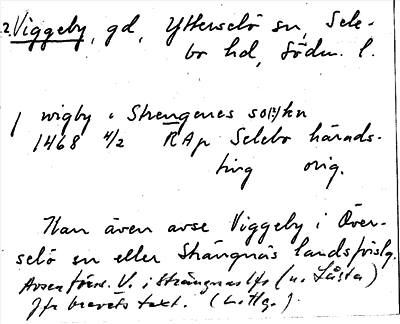 2. Viggeby, gd, Ytterselö sn, Sele-
bo hd, Södm. l.
1 wigby i Strengenes sokn
1468 4/2 RAp Selebo härads-
ting orig.
Kan även avse Viggeby i Över-
selö sn eller Strängnäs landsförslg.
Avser förv. V. i Strängnäs lfs (u. Låsta)
Jfr brevets text.